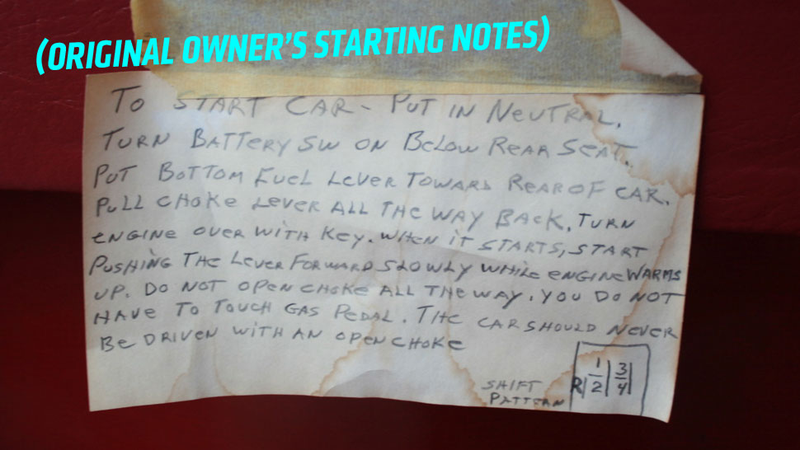 (ORIGINAL OWNER'S STARTING NOTES)
TO START CAR - PUT IN NEUTRAL.
TURN BATTERY SW ON BELOW REAR SEAT.
PUT BOTTOM FUEL LEVER TOWARD REAR OF CAR.
PULL CHOKE LEVER ALL THE WAY BACK. TURN
ENGINE OVER WITH KEY. WHEN IT STARTS, START
PUSHING THE LEVER FORWARD SLOWLY WHILE ENGINE WARMS
UP. DO NOT OPEN CHOKE ALL THE WAY. YOU DO NOT
HAVE TO TOUCH GAS PEDAL. THE CAR SHOULD NEVER
BE DRIVEN WITH AN OPEN CHOKE
SHIFT
PATTERN
R| 1 | 3
2 | 4|